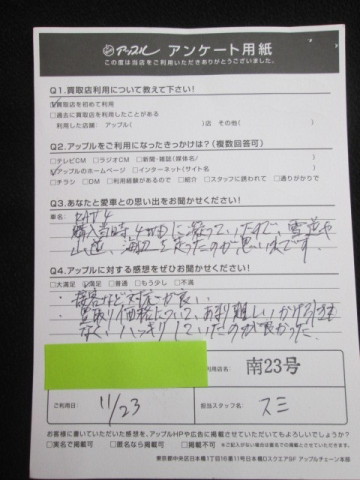 アップル アンケート用紙
この度は当店をご利用いただきありがとうございました。
Q1.買取店利用について教えて下さい!
☑買取店を初めて利用
□過去に買取店を利用したことがある
利用した店舗: アップル( )店 その他( )
Q2.アップルをご利用になったきっかけは?(複数回答可)
□テレビCM □ラジオCM □新聞・雑誌(媒体名/ )
☑アップルのホームページ □インターネット(サイト名 )
□チラシ □DM □利用経験があるので □紹介 □スタッフに誘われて □通りがかりで
Q3.あなたと愛車との思い出をお聞かせください!
車名: RAV4
購入当時、4駆に凝っていたので、雪道や
山道、海辺を走ったのが思い出です。
Q4.アップルに対する感想をぜひお聞かせください!
□大満足 ☑満足 □普通 □もう少し □不満
・接客など対応が良い
・買取り価格について、あまり難しいかけ引きも
なく、ハッキリしていたのが良かった。
利用店名: 南23号
ご利用日: 11/23
担当スタッフ名: スミ
お客様に書いていただいた感想を、アップルHPや広告に掲載させていただいてもよろしいでしょうか?
□実名で掲載可 □匿名なら掲載可 □掲載不可
東京都中央区日本橋1丁目16番11号日本橋DスクエアSF アップルチェーン本部